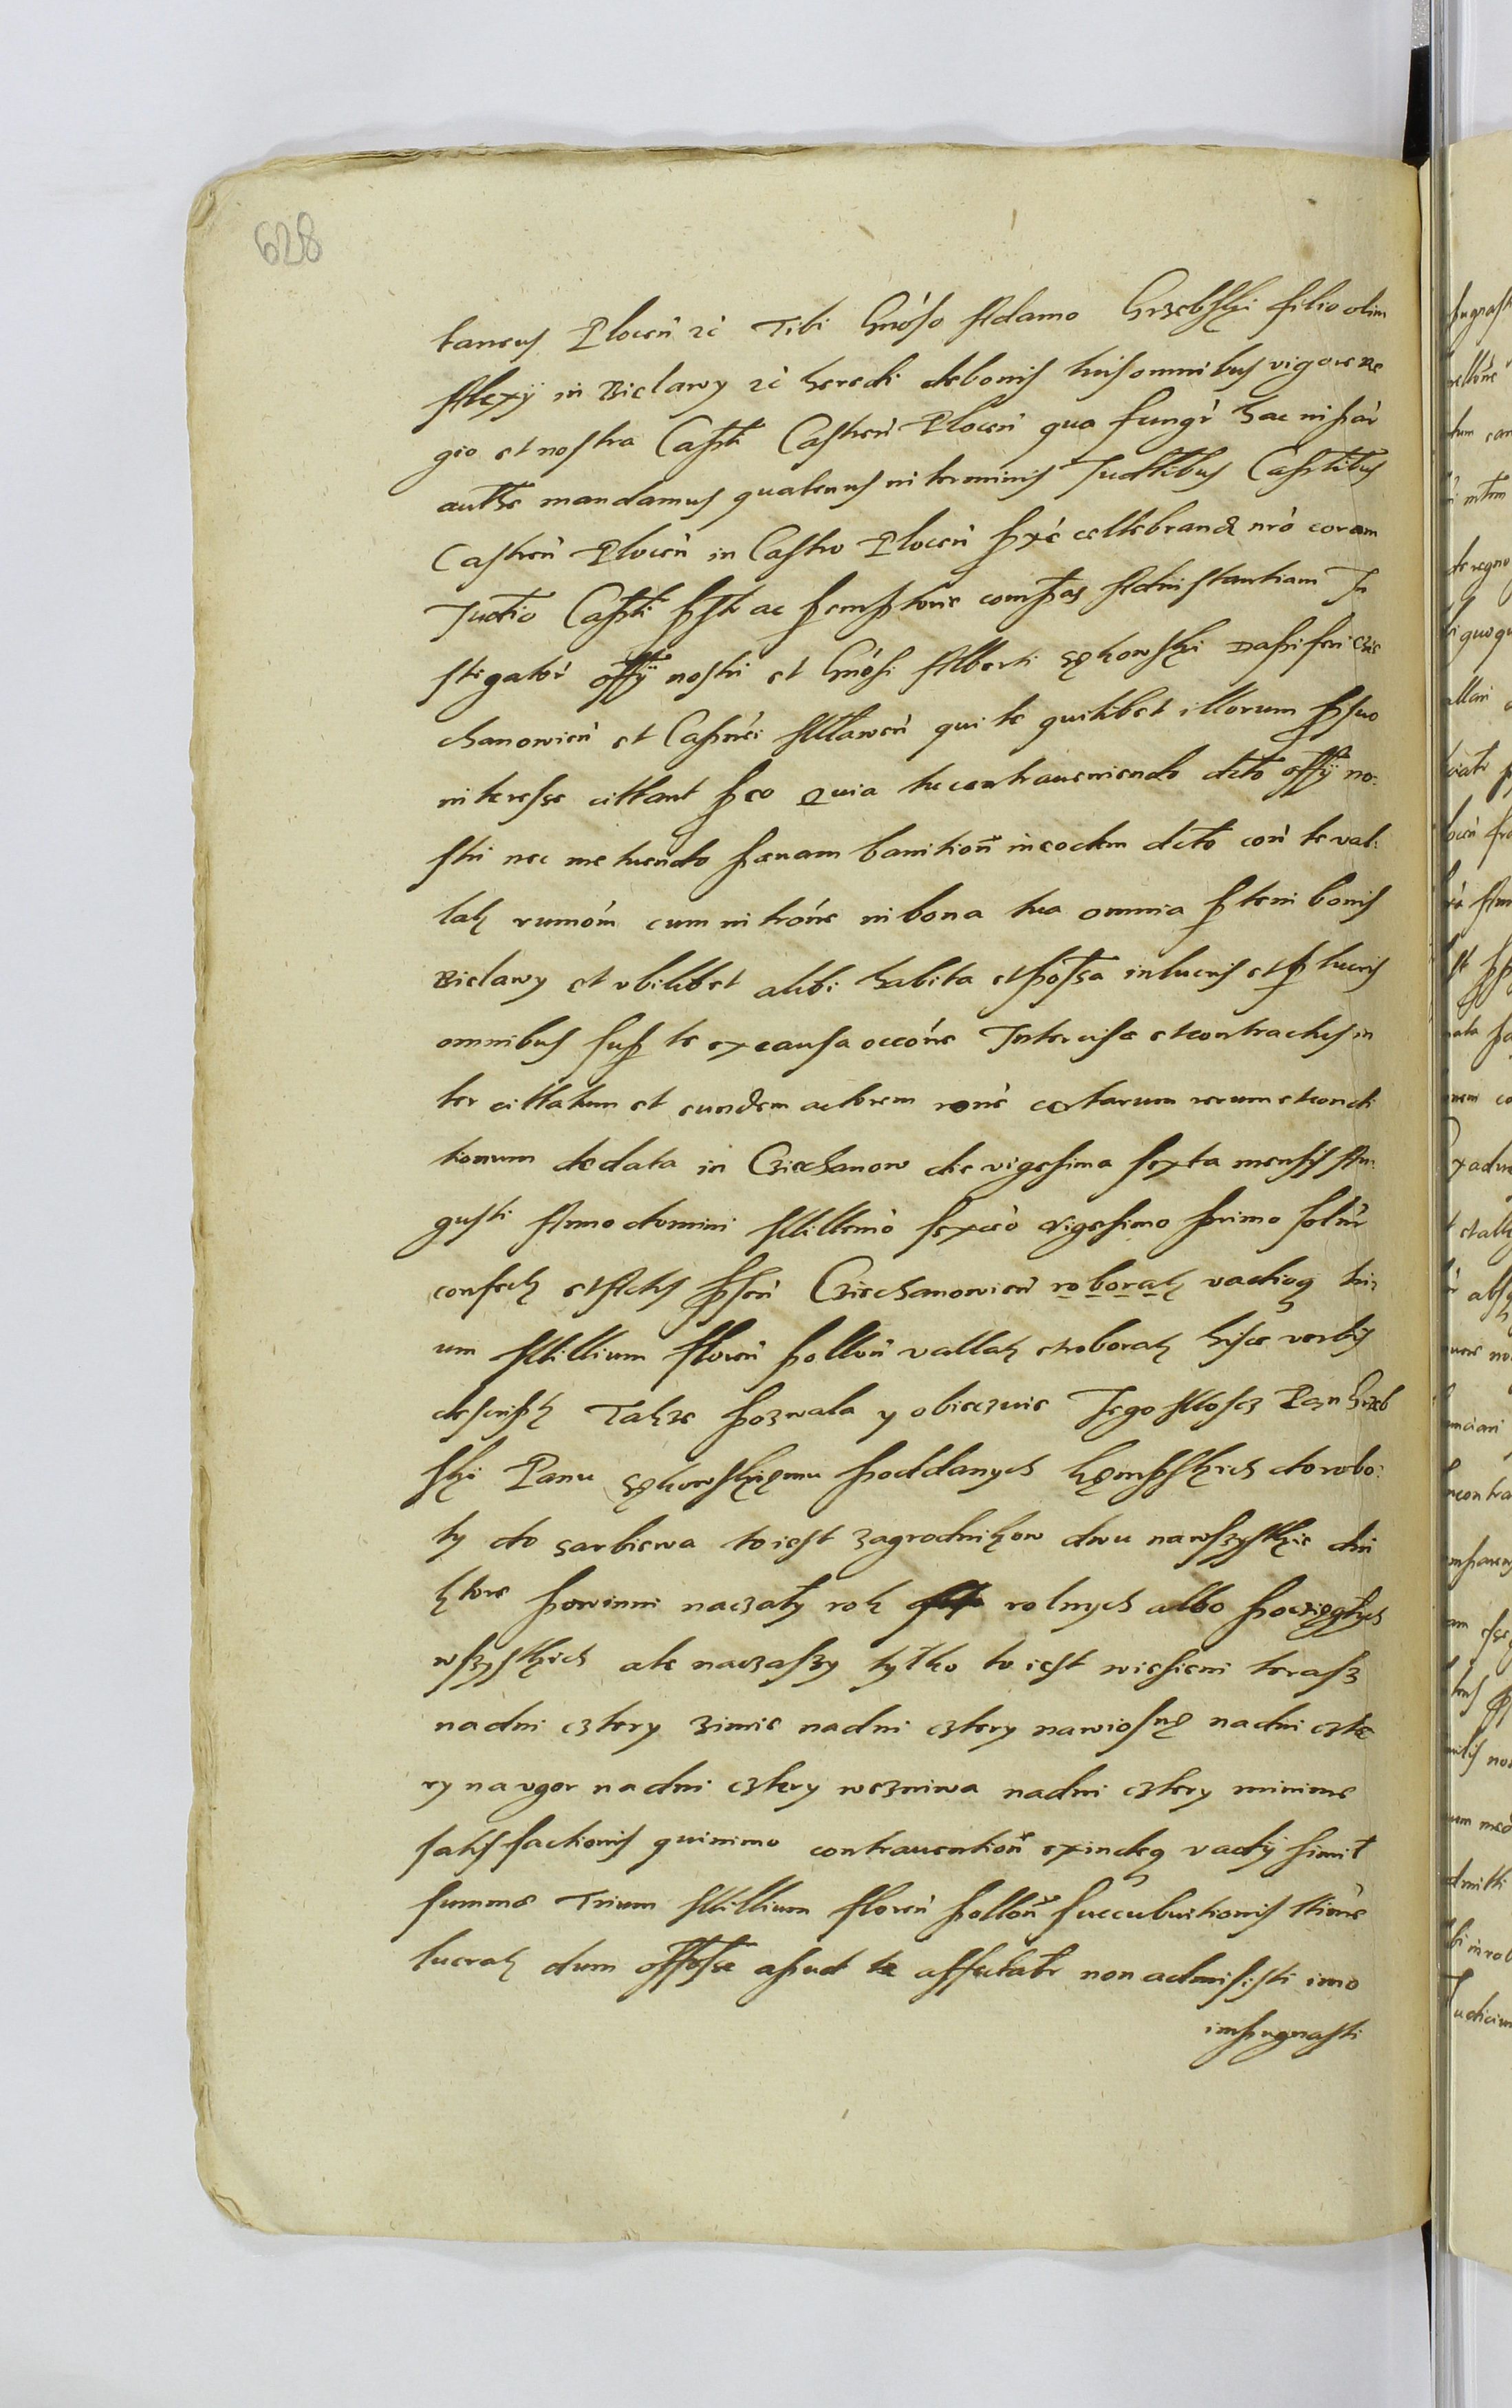 628
taneus Plocen̄ zc̄ Tibi Gnóso Adamo Grzebski filio olim
Alexÿ in Bielawy zc̄ heredi de bonis tuis omnibus vigore Re
gio et nostra Capt̄li Castren̄ Plocen̄ qua fungr̄ hac in par̄
auth̄e mandamus quatenus in terminis Judt̄libus Capt̄libus
Castren̄ Plocen̄ in Castro Plocen̄ pxē cellebrand nrō coram
Judtio Capt̄li pst̄i ac personaliter compareas Ad instantiam In
stigator̄ offÿ nostri et Gnósi Alberti Sękowski Dapiferi Cie
chanowien̄ et Capnei Mlawen̄ qui te quilibet illorum pro suo
interesse cittant pro eo Quia tu contraueniendo dct̄o offÿ no:
stri nec metuendo pænam banition̄ in eodem dct̄o con te val:
latę rumón cum intróne in bona tua omnia p̱te in bonis
Bielawy et vbilibet alibi habita et poss̄a in lucris et p̱ lucris
omnibus sup̱ te ex causa occóne Intercise et contractus in
ter cittatum et eundem actorem rone certarum rerum et condi
tionum de data in Cziechanow die vigesima sexta mensis Au
gusti Anno domini Millen̄o sexcen̄o vigesimo primo solnr̄
confectę et Actis p̱sen̄ Cziechanowien̄ roboratę vadioq tri
um Millium floren̄ pollon̄ vallatę et roboratę hisce verbis
descriptę Takze pozwala y obieczuie Jego Moscz Pan Grzeb
ski Panu Sękowskięmu poddanych Kępskich do robo:
ty do Sarbiewa to iest zagrodnikow dwu na wszystkie dni
ktore powinni na czały rok rolnych albo poczięgłych
wszystkich ale na czaszy tylko to iest wiesieni terasz
na dni cztery zimie na dni cztery na wiosnę na dni czte
ry na vgor na dni cztery we zniwa na dni cztery minime
satisfactionis quinimo contrauention̄ exindeq vadÿ simil
summe Trium Millium floren̄ pollon̄ succubuitionis ttione
lucratę dum offose apud te affectatr̄ non admisisti imo
impugnasti